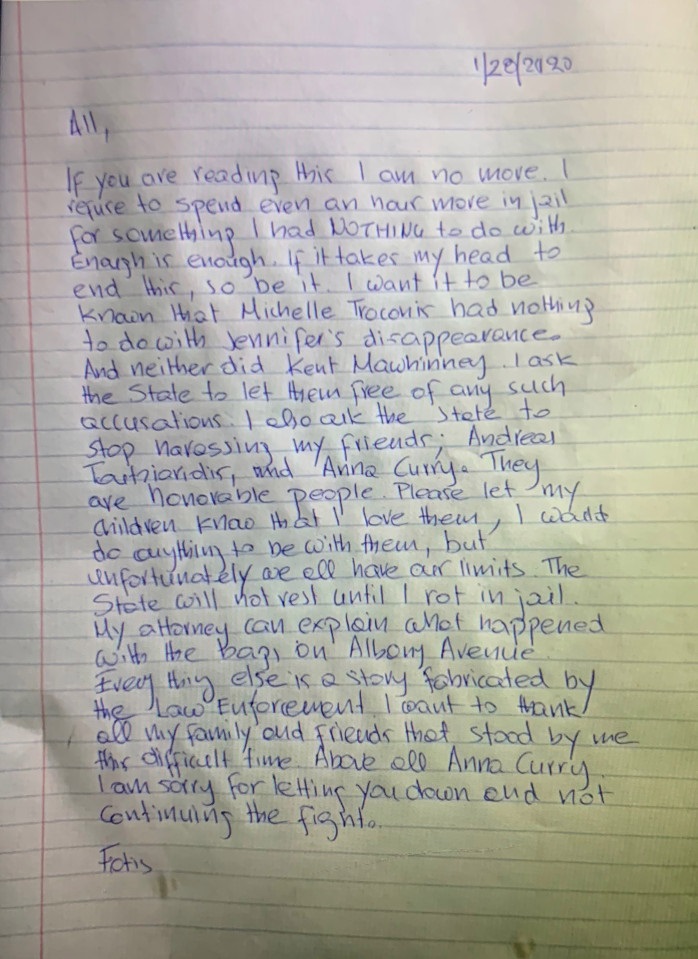 1/28/2020
All,
If you are reading this I am no more. I
refuse to spend even an hour more in jail
for something I had NOTHING to do with.
Enough is enough. If it takes my head to
end this, so be it. I want it to be
known that Michelle Troconis had nothing
to do with Jennifer's disappearance.
And neither did Kent Mawhinney. I ask
the State to let them free of any such
accusations. I also ask the State to
stop harassing my friends; Andreas
Toutziaridis, and Anna Curry. They
are honorable people. Please let my
children know that I love them, I would
do anything to be with them, but
unfortunately we all have our limits. The
State will not rest until I rot in jail.
My attorney can explain what happened
with the bags on Albany Avenue.
Every thing else is a story fabricated by
the Law Enforcement. I want to thank
all my family and friends that stood by me
this difficult time. Above all Anna Curry.
I am sorry for letting you down and not
continuing the fight.
Fotis